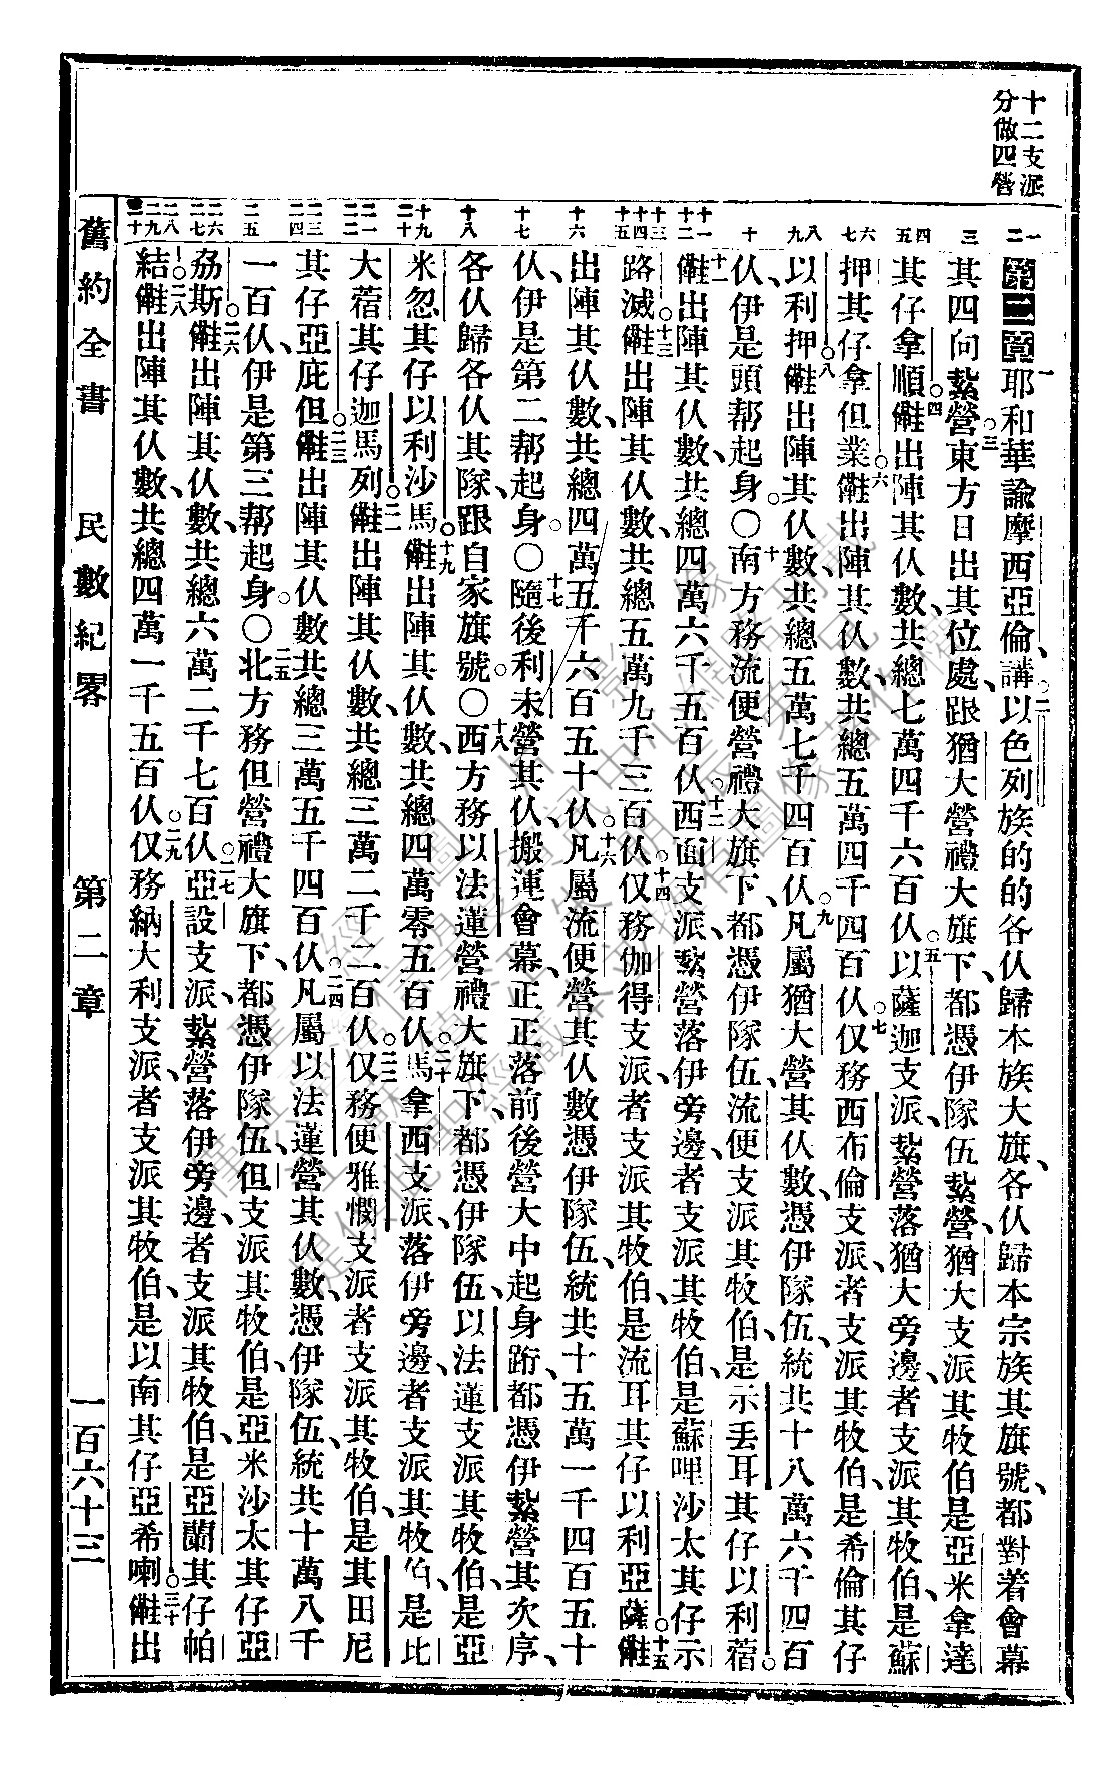 十二支派
分做四營
第二章一耶和華諭摩西亞倫、講、○二以色列族的的各仈歸本族大旗、各仈歸本宗族其旗號、都對着會幕
其四向紮營○三東方日出其位處、跟猶大營禮大旗下、都憑伊隊伍紮營、猶大支派其牧伯是亞米拿達
其仔拿順○四𠆧出陣其仈數、共總七萬四千六百仈○五以薩迦支派、紮營落猶大旁邊、者支派其牧伯、是蘇
押其仔拿但業○六𠆧出陣其仈數、共總五萬四千四百仈○七仅務西布倫支派、者支派其牧伯、是希倫其仔
以利押○八𠆧出陣其仈數、共總五萬七千四百仈○九凡屬猶大營其仈數、憑伊隊伍、統共十八萬六千四百
仈、伊是頭帮起身。○十南方務流便營禮大旗下、都憑伊隊伍、流便支派其牧伯、是示丟耳其仔以利蓿。
十一𠆧出陣其仈數、共總四萬六千五百仈○十二西面支派、紮營落伊旁邊、者支派其牧伯、是蘇哩沙太其仔示
路滅○十三𠆧出陣其仈數、共總五萬九千三百仈○十四仅務伽得支派、者支派其牧伯、是流耳其仔以利亞薩○十五𠆧
出陣其仈數、共總四萬五千六百五十仈○十六凡屬流便營其仈數、憑伊隊伍、統共十五萬一千四百五十
仈、伊是第二帮起身。○十七隨後利未營其仈、搬運會幕、正正落前後營大中起身跡、都憑伊紮營其次序、
各仈歸各仈其隊、跟自家旗號。○十八西方務以法蓮營禮大旗下、都憑伊隊伍、以法蓮支派其牧伯、是亞
米忽其仔以利沙馬○十九𠆧出陣其仈數、共總四萬零五百仈○二十馬拿西支派、落伊旁邊、者支派其牧伯、是比
大蓿其仔迦馬列○二一𠆧出陣其仈數、共總三萬二千二百仈○二二仅務便雅憫支派、者支派其牧伯、是其田尼
其仔亞庇但○二三𠆧出陣其仈數、共總三萬五千四百仈○二四凡屬以法蓮營其仈數、憑伊隊伍、統共十萬八千
一百仈、伊是第三帮起身。○二五北方務但營禮大旗下、都憑伊隊伍、但支派其牧伯、是亞米沙太其仔亞
希以謝○二六𠆧出陣其仈數、共總六萬二千七百仈○二七亞設支派、紮營落伊旁邊、者支派其牧伯、是亞蘭其仔帕
結○二八𠆧出陣其仈數、共總四萬一千五百仈○二九仅務納大利支派、者支派其牧伯、是以南其仔亞希喇○三十𠆧出
舊約全書　民數紀畧　第二章　一百六十三